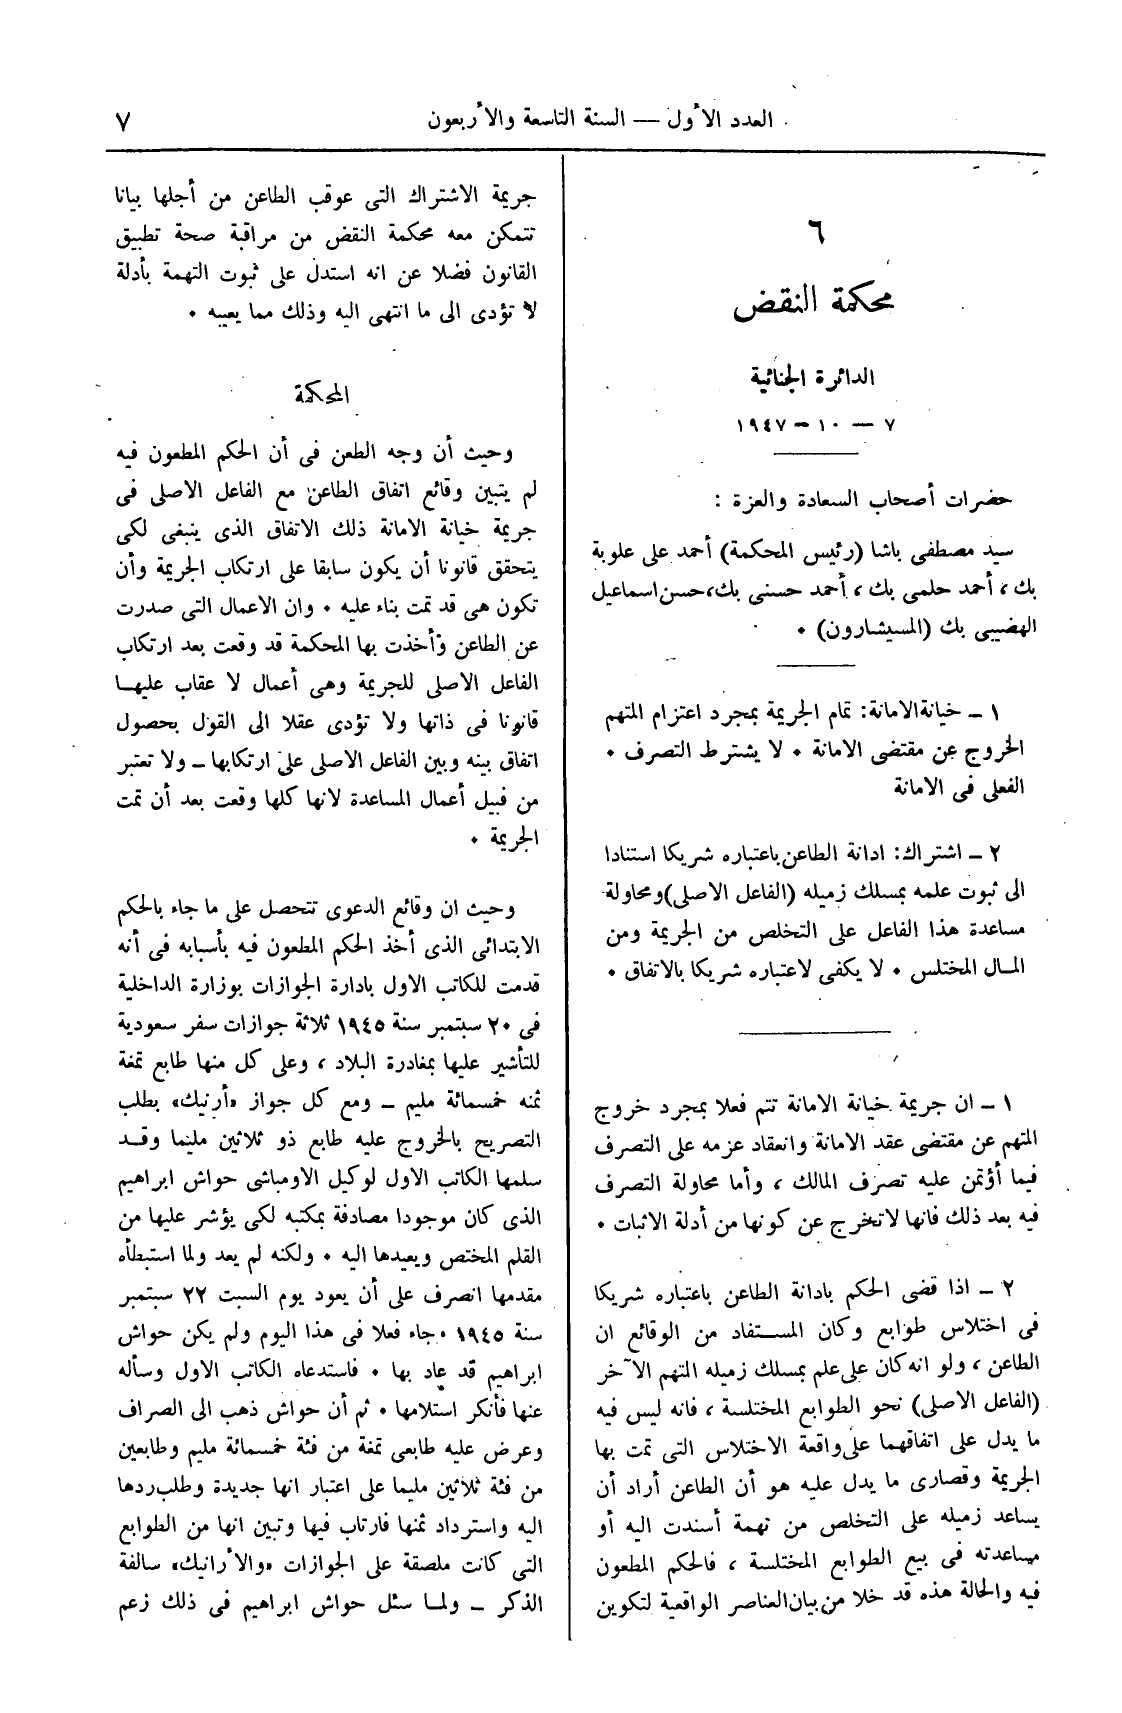 العدد الأول — السنة التاسعة والأربعون
٧
٦
محكمة النقض
الدائرة الجنائية
٧ — ١٠ — ١٩٤٧
حضرات أصحاب السعادة والعزة :
سيد مصطفى باشا (رئيس المحكمة) أحمد على علوبة
بك ، أحمد حلمى بك ، أحمد حسنى بك، حسن اسماعيل
الهضيبى بك (المسيشارون) •
١ – خيانة الامانة: تمام الجريمة بمجرد اعتزام المتهم
الخروج عن مقتضى الامانة • لا يشترط التصرف •
الفعلى فى الامانة
٢ – اشتراك: ادانة الطاعن باعتباره شريكا استنادا
الى ثبوت علمه بمسلك زميله (الفاعل الاصلى) ومحاولة
مساعدة هذا الفاعل على التخلص من الجريمة ومن
المال المختلس • لا يكفى لاعتباره شريكا بالاتفاق •
١ – ان جريمة خيانة الامانة تتم فعلا بمجرد خروج
المتهم عن مقتضى عقد الامانة وانعقاد عزمه على التصرف
فيما أؤتمن عليه تصرف المالك ، وأما محاولة التصرف
فيه بعد ذلك فانها لا تخرج عن كونها من أدلة الاثبات •
٢ – اذا قضى الحكم بادانة الطاعن باعتباره شريكا
فى اختلاس طوابع وكان المستفاد من الوقائع ان
الطاعن ، ولو انه كان على علم بمسلك زميله المتهم الآخر
(الفاعل الاصلى) نحو الطوابع المختلسة ، فانه ليس فيه
ما يدل على اتفاقهما على واقعة الاختلاس التى تمت بها
الجريمة وقصارى ما يدل عليه هو أن الطاعن أراد أن
يساعد زميله على التخلص من تهمة أسندت اليه أو
مساعدته فى بيع الطوابع المختلسة ، فالحكم المطعون
فيه والحالة هذه قد خلا من بيان العناصر الواقعية لتكوين
جريمة الاشتراك التى عوقب الطاعن من أجلها بيانا
تتمكن معه محكمة النقض من مراقبة صحة تطبيق
القانون فضلا عن انه استدل على ثبوت التهمة بأدلة
لا تؤدى الى ما انتهى اليه وذلك مما يعيبه •
المحكمة
وحيث أن وجه الطعن فى أن الحكم المطعون فيه
لم يتبين وقائع اتفاق الطاعن مع الفاعل الاصلى فى
جريمة خيانة الامانة ذلك الاتفاق الذى ينبغى لكى
يتحقق قانونا أن يكون سابقا على ارتكاب الجريمة وأن
تكون هى قد تمت بناء عليه • وان الاعمال التى صدرت
عن الطاعن وأخذت بها المحكمة قد وقعت بعد ارتكاب
الفاعل الاصلى للجريمة وهى أعمال لا عقاب عليها
قانونا فى ذاتها ولا تؤدى عقلا الى القول بحصول
اتفاق بينه وبين الفاعل الاصلى على ارتكابها – ولا تعتبر
من قبيل أعمال المساعدة لانها كلها وقعت بعد أن تمت
الجريمة •
وحيث ان وقائع الدعوى تتحصل على ما جاء بالحكم
الابتدائى الذى أخذ الحكم المطعون فيه بأسبابه فى أنه
قدمت للكاتب الاول بادارة الجوازات بوزارة الداخلية
فى ٢٠ سبتمبر سنة ١٩٤٥ ثلاثة جوازات سفر سعودية
للتأشير عليها بمغادرة البلاد ، وعلى كل منها طابع تمغة
ثمنه خمسمائة مليم – ومع كل جواز «أرنيك» بطلب
التصريح بالخروج عليه طابع ذو ثلاثين مليما وقد
سلمها الكاتب الاول لوكيل الاومباشى حواش ابراهيم
الذى كان موجودا مصادفة بمكتبه لكى يؤشر عليها من
القلم المختص ويعيدها اليه • ولكنه لم يعد ولما استبطأه
مقدمها انصرف على أن يعود يوم السبت ٢٢ سبتمبر
سنة ١٩٤٥ • جاء فعلا فى هذا اليوم ولم يكن حواش
ابراهيم قد عاد بها • فاستدعاه الكاتب الاول وسأله
عنها فأنكر استلامها • ثم أن حواش ذهب الى الصراف
وعرض عليه طابعى تمغة من فئة خمسمائة مليم وطابعين
من فئة ثلاثين مليما على اعتبار انها جديدة وطلب ردها
اليه واسترداد ثمنها فارتاب فيها وتبين انها من الطوابع
التى كانت ملصقة على الجوازات «والأرانيك» سالفة
الذكر – ولما سئل حواش ابراهيم فى ذلك زعم